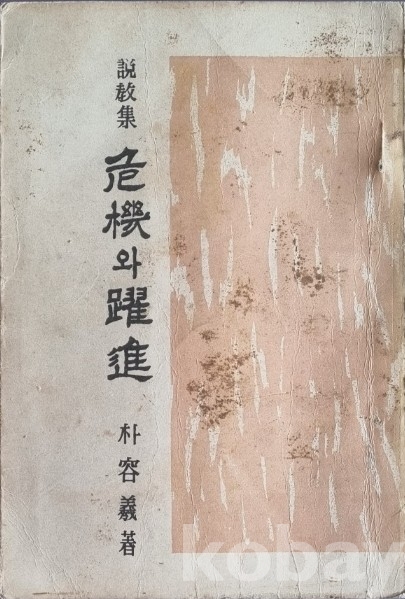 說敎集
危機와躍進
朴容羲著
kobay